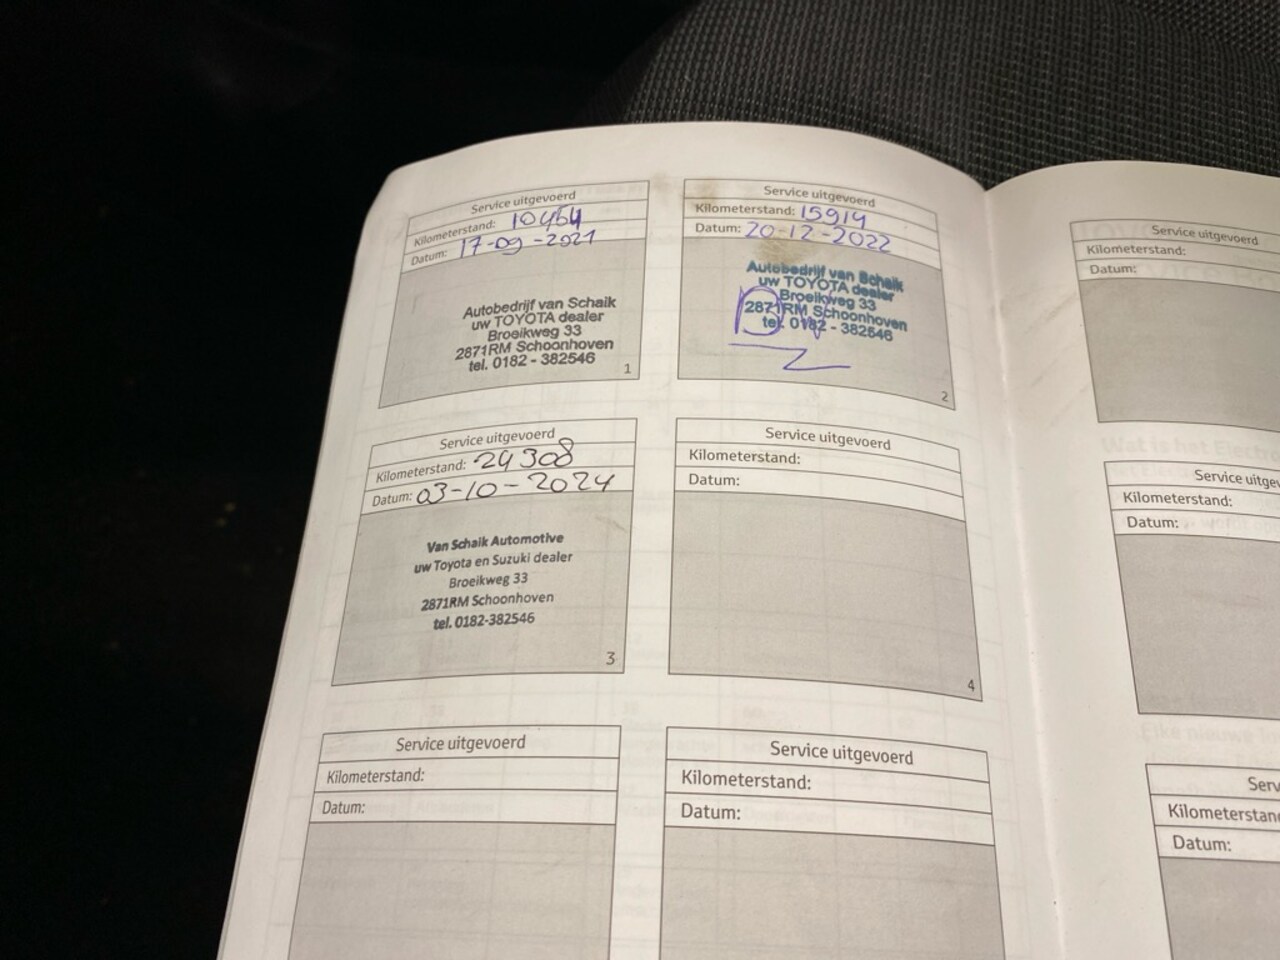 Service uitgevoerd
Kilometerstand: 10454
Datum: 17-09-2021
Autobedrijf van Schaik
uw TOYOTA dealer
Broeikweg 33
2871RM Schoonhoven
tel. 0182 - 382546
1
Service uitgevoerd
Kilometerstand: 15914
Datum: 20-12-2022
Autobedrijf van Schaik
uw TOYOTA dealer
Broeikweg 33
2871RM Schoonhoven
tel. 0182 - 382546
2
Service uitgevoerd
Kilometerstand: 24308
Datum: 03-10-2024
Van Schaik Automotive
uw Toyota en Suzuki dealer
Broeikweg 33
2871RM Schoonhoven
tel. 0182-382546
3
Service uitgevoerd
Kilometerstand:
Datum:
4
Service uitgevoerd
Kilometerstand:
Datum:
Service uitgevoerd
Kilometerstand:
Datum:
Service uitgevoerd
Kilometerstand:
Datum:
Service
Kilometerstand:
Datum:
Kilometerstan
Datum: